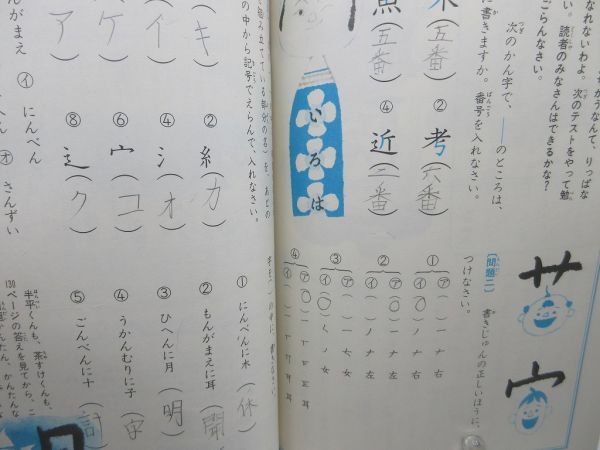 かうなんて、りっぱな
なれないわよ。次のテストをやって勉
い。読者のみなさんはできるかな？
ごらんなさい。
次のかん字で、――のところは、
に書きますか。番号を入れなさい。
② 考（六番）
（五番）
④ 近（二番）
魚（五番）
いろは
艹
宀
［問題二］ 書きじゅんの正しいほうに、
つけなさい。
① ㋐（ ）一ナ右
㋑（〇）ノナ右
② ㋐（〇）一ナ左
㋑（ ）ノナ左
③ ㋐（ ）女
㋑（〇）く女
④ ㋐（〇）耳
㋑（ ）耳
組み立てている部分の名）を、あとの
の中から記号でえらんで、入れなさい。
（キ）
② 糸（カ）
（イ）
④ 氵（オ）
（ケ）
⑥ 宀（コ）
（ア）
⑧ 辶（ク）
んがまえ ㋑ にんべん
㋔ さんずい
① にんべんに木（休）
② もんがまえに耳（聞）
③ ひへんに月（明）
④ うかんむりに子（字）
⑤ ごんべんに十（計）
半平くんも、茶すけくんも、
130ページの答えを見てから、こ